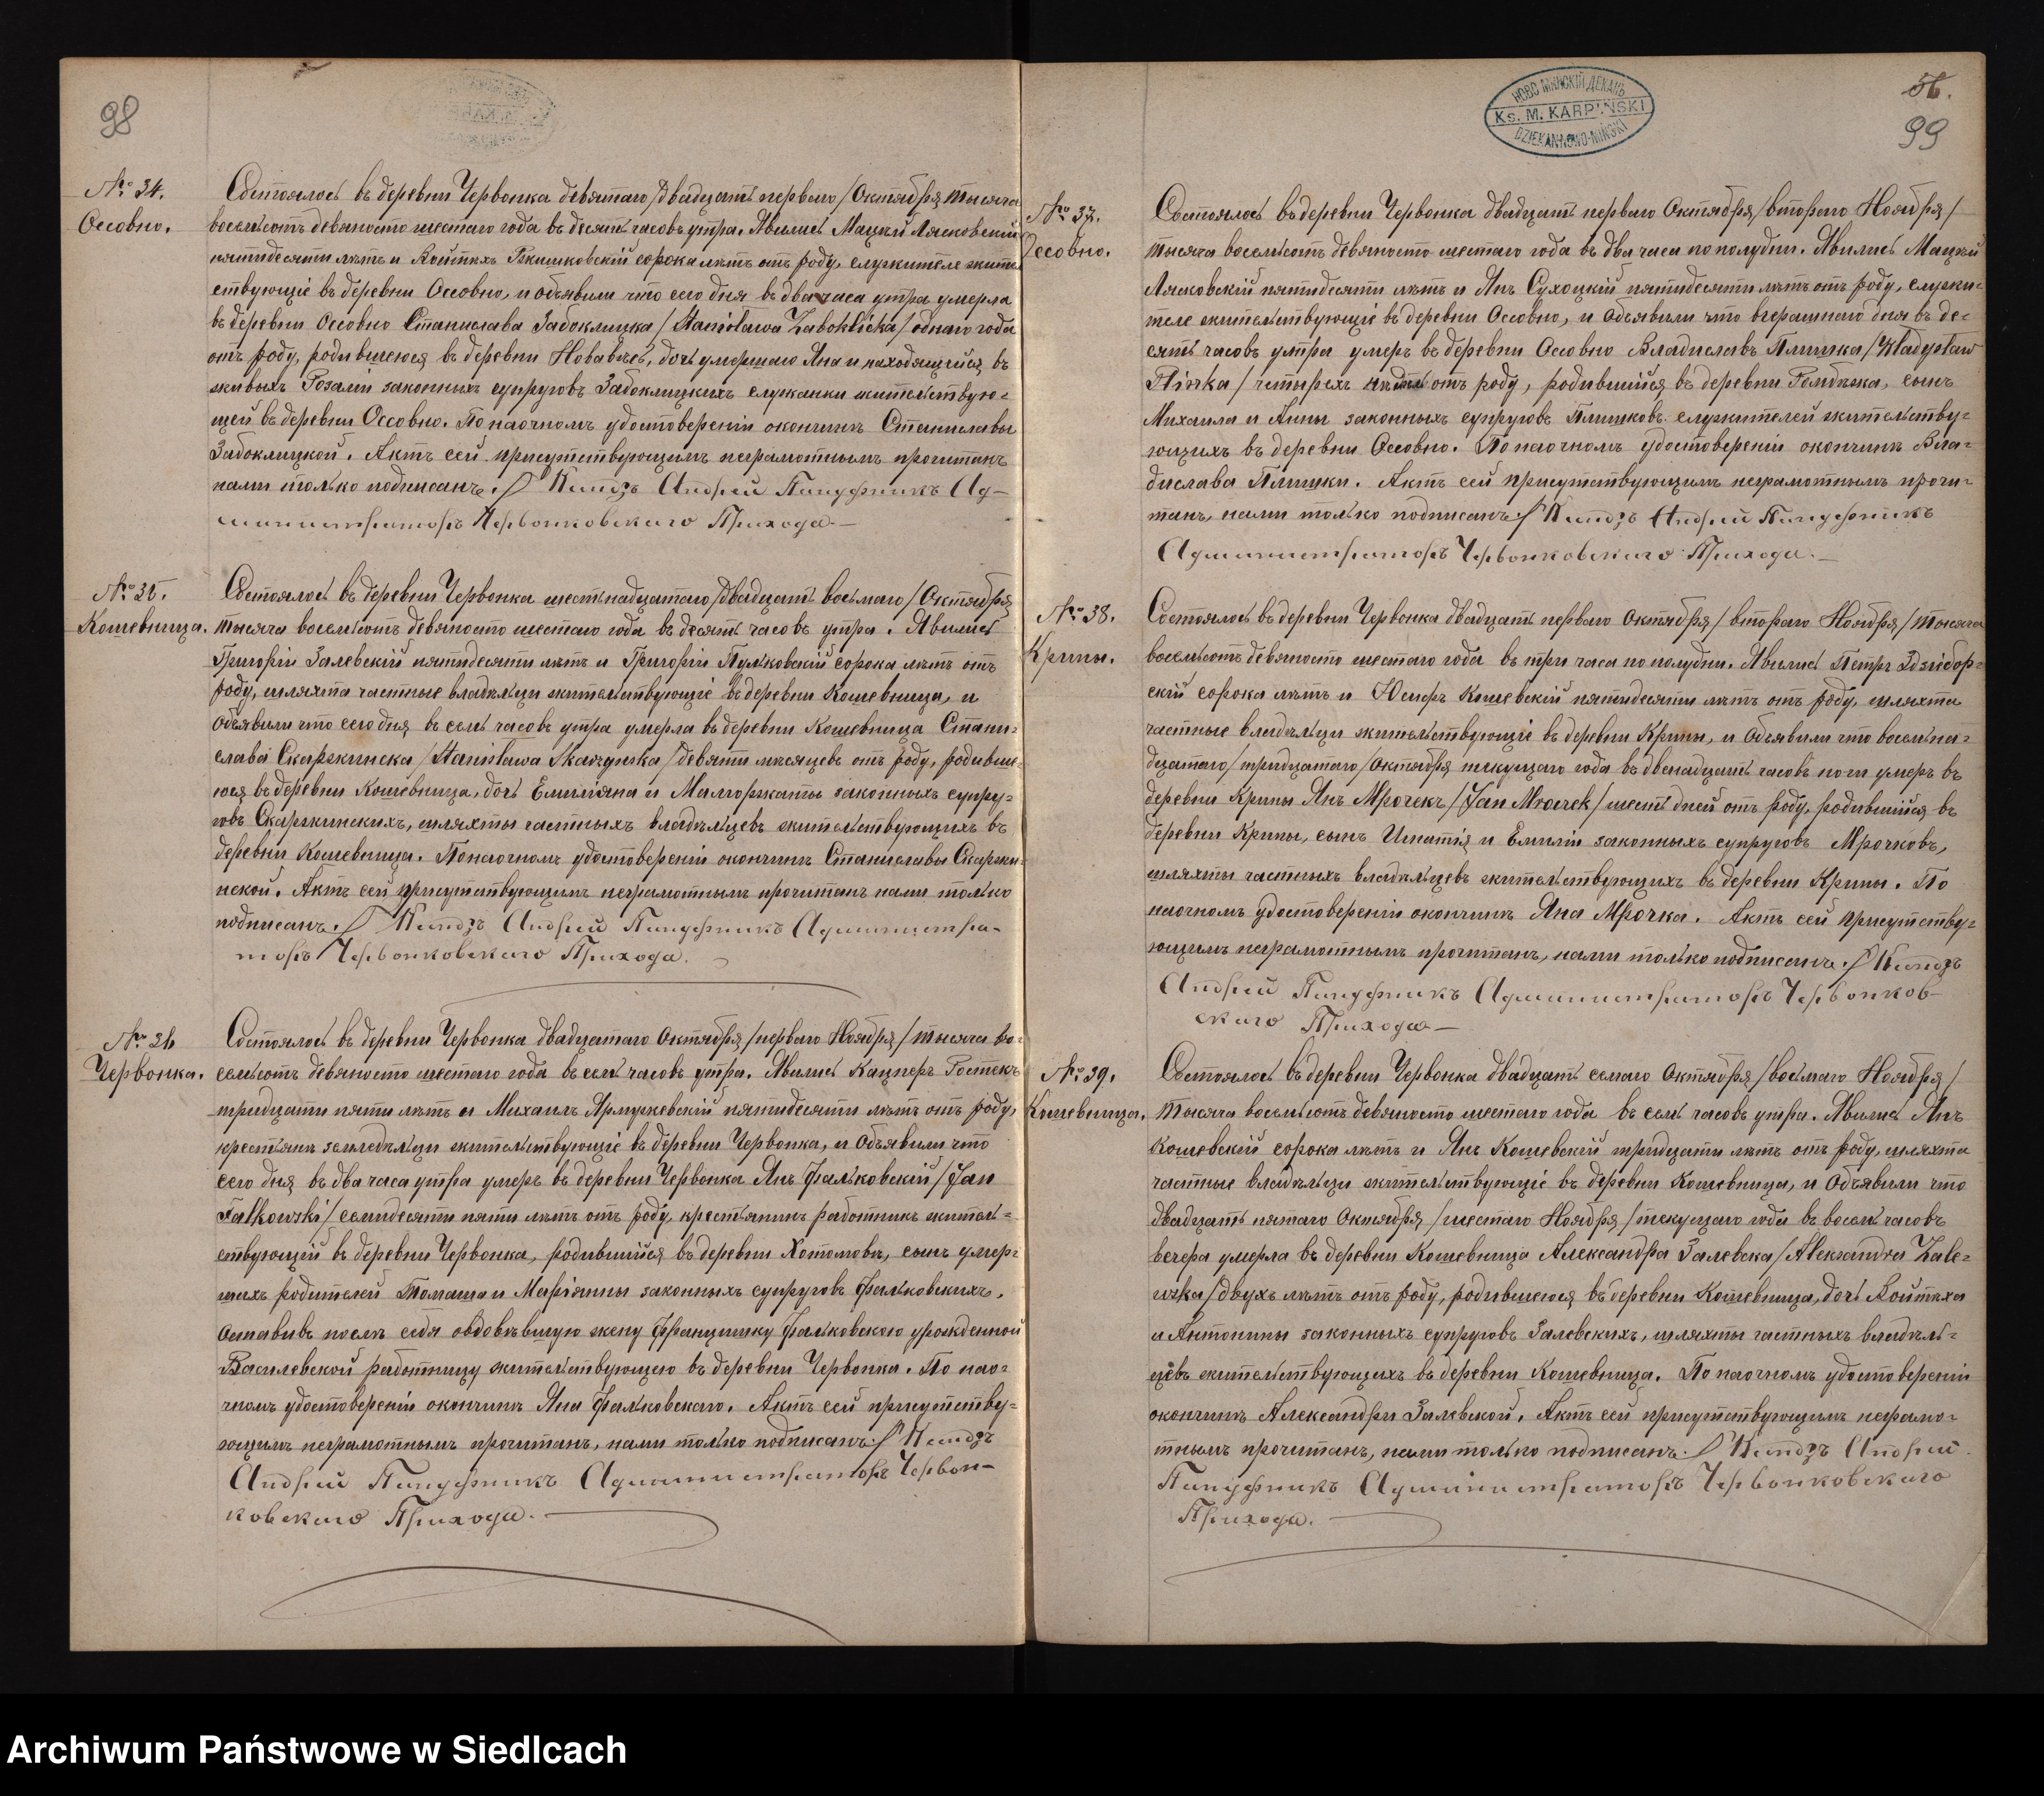 98
№ 34.
Оссовно.
Состоялось въ деревни Червонка девятаго /двадцать перваго/ Октября тысяча
восемьсотъ девяносто шестаго года въ десять часовъ утра. Явились Мацѣй Лясковскій
пятидесяти лѣтъ и Войтѣхъ Ржишковскій сорока лѣтъ отъ роду, служителе житель
ствующіе въ деревни Оссовно, и объявили что сего дня въ два часа утра умерла
въ деревни Оссовно Станислава Забоклицка /Stanisława Zaboklicka/ однаго года
отъ роду, родившеюся въ деревни Новавѣсь, дочь умершаго Яна и находящейся въ
живыхъ Розаліи законныхъ супруговъ Забоклицкихъ служанки жительствую-
щей въ деревни Оссовно. По наочномъ удостовереніи окончинѣ Станиславы
Забоклицкой. Актъ сей присутствующимъ неграмотнымъ прочитанъ
нами только подписанъ. Ксендзъ Андрей Пануфникъ Ад-
министраторъ Червонковскаго Прихода.—
№ 35.
Кошевница.
Состоялось въ деревни Червонка шестьнадцатаго /двадцать восьмаго/ Октября
тысяча восемьсотъ девяносто шестаго года въ десять часовъ утра. Явились
Григорій Залевскій пятидесяти лѣтъ и Григорій Пулковскій сорока лѣтъ отъ
роду, шляхта частные владѣльцы жительствующіе въ деревни Кошевница, и
объявили что сего дня въ семь часовъ утра умерла въ деревни Кошевница Стани-
слава Скаржинска /Stanisława Skarżynska/ девяти мѣсяцевъ отъ роду, родивше-
юся въ деревни Кошевница, дочь Емиліяна и Малгоржаты законныхъ супру-
говъ Скаржинскихъ, шляхты частныхъ владѣльцевъ жительствующихъ въ
деревни Кошевница. По наочномъ удостовереніи окончинѣ Станиславы Скаржи-
нской. Актъ сей присутствующимъ неграмотнымъ прочитанъ нами только
подписанъ. Ксендзъ Андрей Пануфникъ Администра-
торъ Червонковскаго Прихода.
№ 36
Червонка.
Состоялось въ деревни Червонка двадцатаго Октября /перваго Ноября/ тысяча во-
семьсотъ девяносто шестаго года въ семь часовъ утра. Явились Кацперъ Ростекъ
тридцати пяти лѣтъ и Михаилъ Ярмужевскій пятидесяти лѣтъ отъ роду,
крестьяне земледѣльцы жительствующіе въ деревни Червонка, и Объявили что
сего дня въ два часа утра умеръ въ деревни Червонка Янъ Фальковскій /Jan
Falkowski/ семидесяти пяти лѣтъ отъ роду, крестьянинъ работникъ житель-
ствующій въ деревни Червонка, родившійся въ деревни Хотомовъ, сынъ умер-
шихъ родителей Томаша и Маріянны законныхъ супруговъ Фальковскихъ,
Оставивъ послѣ себя овдовѣвшую жену Францишку Фальковскою урожденной
Василевской работницу жительствующею въ деревни Червонка. По нао-
чномъ удостовереніи окончинѣ Яна Фальковскаго. Актъ сей присутству-
ющимъ неграмотнымъ прочитанъ, нами только подписанъ. Ксендзъ
Андрей Пануфникъ Администраторъ Червон-
ковскаго Прихода.
НОВО МИНСКІЙ ДЕКАНЪ
Ks. M. KARPIŃSKI
DZIEKAN NOWO-MIŃSKI
56.
99
№ 37.
Оссовно.
Состоялось въ деревни Червонка двадцать перваго Октября /втораго Ноября/
тысяча восемьсотъ девяносто шестаго года въ два часа по полудни. Явились Мацѣй
Лясковскій пятидесяти лѣтъ и Янъ Сухоцкій пятидесяти лѣтъ отъ роду, служи-
теле жительствующіе въ деревни Оссовно, и Объявили что вчерашнаго дня въ де-
сять часовъ утра умеръ въ деревни Оссовно Владиславъ Плишка /Władysław
Pliszka/ четырехъ лѣтъ отъ роду, родившійся въ деревни сынъ
Михаила и Анны законныхъ супруговъ Плишковъ служителей жительству-
ющихъ въ деревни Оссовно. По наочномъ удостовереніи окончинѣ Вла-
дислава Плишки. Актъ сей присутствующимъ неграмотнымъ прочи-
танъ, нами только подписанъ. Ксендзъ Андрей Пануфникъ
Администраторъ Червонковскаго Прихода.—
№ 38.
Крипы.
Состоялось въ деревни Червонка двадцать перваго Октября /втораго Ноября/ тысяча
восемьсотъ девяносто шестаго года въ три часа по полудни. Явились Петръ Здзѣбор-
скій сорока лѣтъ и Юзефъ Кошевскій пятидесяти лѣтъ отъ роду, шляхта
частные владѣльцы жительствующіе въ деревни Крипы, и Объявили что восемьна-
дцатаго /тридцатаго/ Октября текущаго года въ двенадцать часовъ ночи умеръ въ
деревни Крипы Янъ Мрочекъ /Jan Mroczek/ шесть дней отъ роду, родившійся въ
деревни Крипы, сынъ Игнатія и Емиліи законныхъ супруговъ Мрочковъ,
шляхты частныхъ владѣльцевъ жительствующихъ въ деревни Крипы. По
наочномъ удостовереніи окончинѣ Яна Мрочка. Актъ сей присутству-
ющимъ неграмотнымъ прочитанъ, нами только подписанъ. Ксендзъ
Андрей Пануфникъ Администраторъ Червонков-
скаго Прихода—
№ 39.
Кошевница.
Состоялось въ деревни Червонка двадцать семаго Октября /восьмаго Ноября/
тысяча восемьсотъ девяносто шестаго года въ семь часовъ утра. Явились Янъ
Кошевскій сорока лѣтъ и Янъ Кошевскій тридцати лѣтъ отъ роду, шляхта
частные владѣльцы жительствующіе въ деревни Кошевница, и Объявили что
двадцать пятаго Октября /шестаго Ноября/ текущаго года въ восемь часовъ
вечера умерла въ деревни Кошевница Александра Залевска /Alexandra Zale-
wska/ двухъ лѣтъ отъ роду, родившеюся въ деревни Кошевница, дочь Войтѣха
и Антонины законныхъ супруговъ Залевскихъ, шляхты частныхъ владѣль-
цевъ жительствующихъ въ деревни Кошевница. По наочномъ удостовереніи
окончинѣ Александры Залевской. Актъ сей присутствующимъ неграмо-
тнымъ прочитанъ, нами только подписанъ. Ксендзъ Андрей
Пануфникъ Администраторъ Червонковскаго
Прихода.
Archiwum Państwowe w Siedlcach